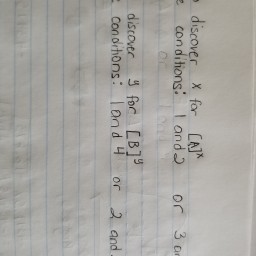 discover x for [A]ˣ
conditions: 1 and 2 or 3
discover y for [B]ʸ
conditions: 1 and 4 or 2 and